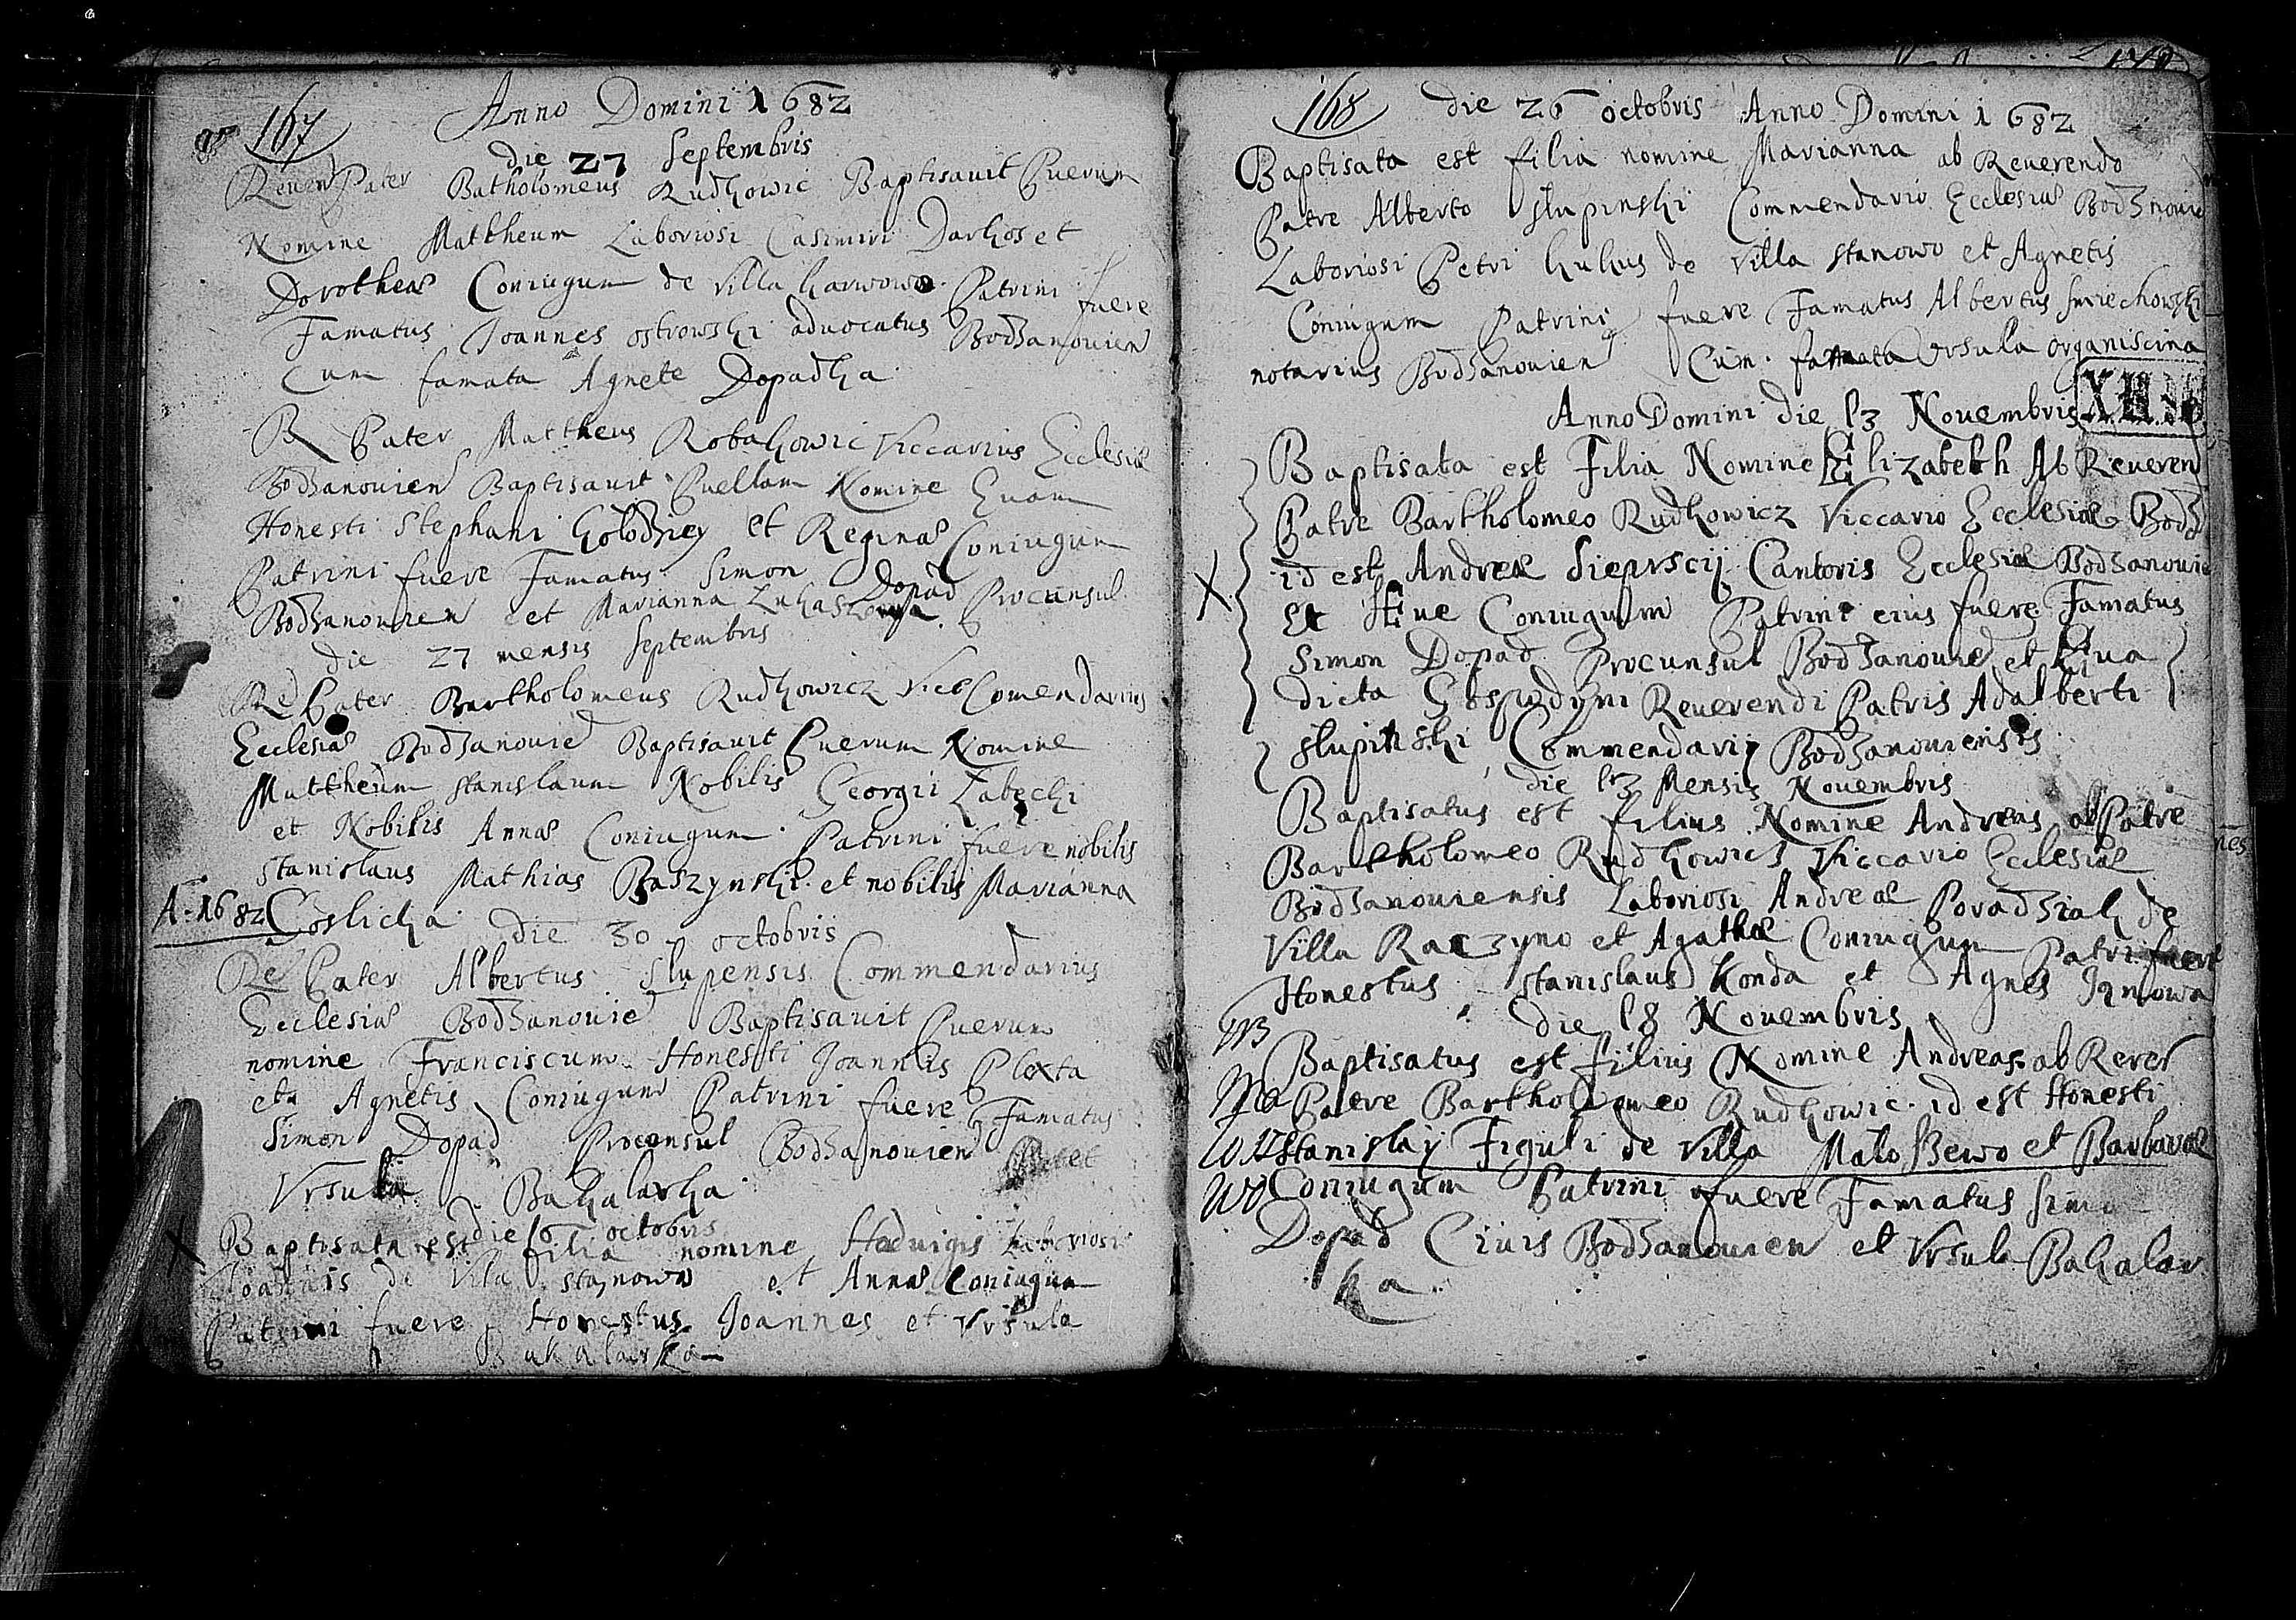 167
Anno Domini 1682
die 27 Septembris
Reuerd Pater Batholomeus Rudkowic Baptisauit Puerum
Nomine Mattheum Laboriosi Casimiri Darkos et
Dorotheae Coniugum de Villa Patrini fuere
Famatus Joannes ostrowski aduocatus Bodzanouien
Cum famata Agnete Dopadka
R Pater Mattheus Robakowic Viccarius Ecclesiae
Bodzanouien Baptisauit Puellam Nomine Euam
Honesti Stephani Golodziey et Reginae Coniugum
Patrini fuere Famatus Simon Dopad Procunsul
Bodzanouien et Marianna Lukaszowa
die 27 mensis Septembris
Red Pater Bartholomeus Rudkowicz Vice Comendarius
Ecclesiae Bodzanouie Baptisauit Puerum Nomine
Mattheum stanislaum Nobilis Georgii Zabecki
et Nobilis Annae Coniugum Patrini fuere nobilis
Stanislaus Mathias Baszynski et nobilis Marianna
A. 1682 Coslicka
die 30 octobris
Red Pater Albertus Slupensis Commendarius
Ecclesiae Bodzanouie Baptisauit Puerum
nomine Franciscum Honesti Joannis Plexta
et Agnetis Coniugum Patrini fuere Famatus
Simon Dopad Proconsul Bodzanouien et
Vrsula Bakalarka
die 16 octobris
Baptisata est filia nomine Haduigis Laboriosi
Joannis de Vila stanowo et Annae Coniugum
Patrini fuere Honestus Joannes et Vrsula
Bakalarka
168
die 26 octobris Anno Domini 1682
Baptisata est filia nomine Marianna ab Reuerendo
Patre Alberto slupinski Commendario Ecclesiae Bodznouie
Laboriosi Petri kukus de Villa stanowo et Agnetis
Coniugum Patrini fuere Famatus Albertus Smiechowski
notarius Bodzanouien Cum famata Vrsula organiscina
Anno Domini die 13 Nouembris
Baptisata est Filia Nomine Elizabeth Ab Reueren
Patre Bartholomeo Rudkowicz Viccario Ecclesiae Bodz
id est Andreae Sieprscij Cantoris Ecclesiae Bodzanouie
Et Eue Coniugum Patrini eius fuere Famatus
Simon Dopad Procunsul Bodzanouie et Eua
dicta Gospodyni Reuerendi Patris Adalberti
slupinski Commendarij Bodzanouiensis
die 13 Mensis Nouembris
Baptisatus est filius Nomine Andreas ab Patre
Bartholomeo Rudkowicz Viccario Ecclesiae
Bodzanouiensis Laboriosi Andreae Poradziak de
Villa Raczyno et Agathae Coniugum Patri fuere
Honestus stanislaus Konda et Agnes
die 18 Nouembris
Baptisatus est filius Nomine Andreas ab Rever
Patre Bartholomeo Rudkowic id est Honesti
Stanislaij Figuli de Villa et Barbarae
Coniugum Patrini fuere Famatus Simo
Dopad Ciuis Bodzanouien et Vrsula Bakalar
ka